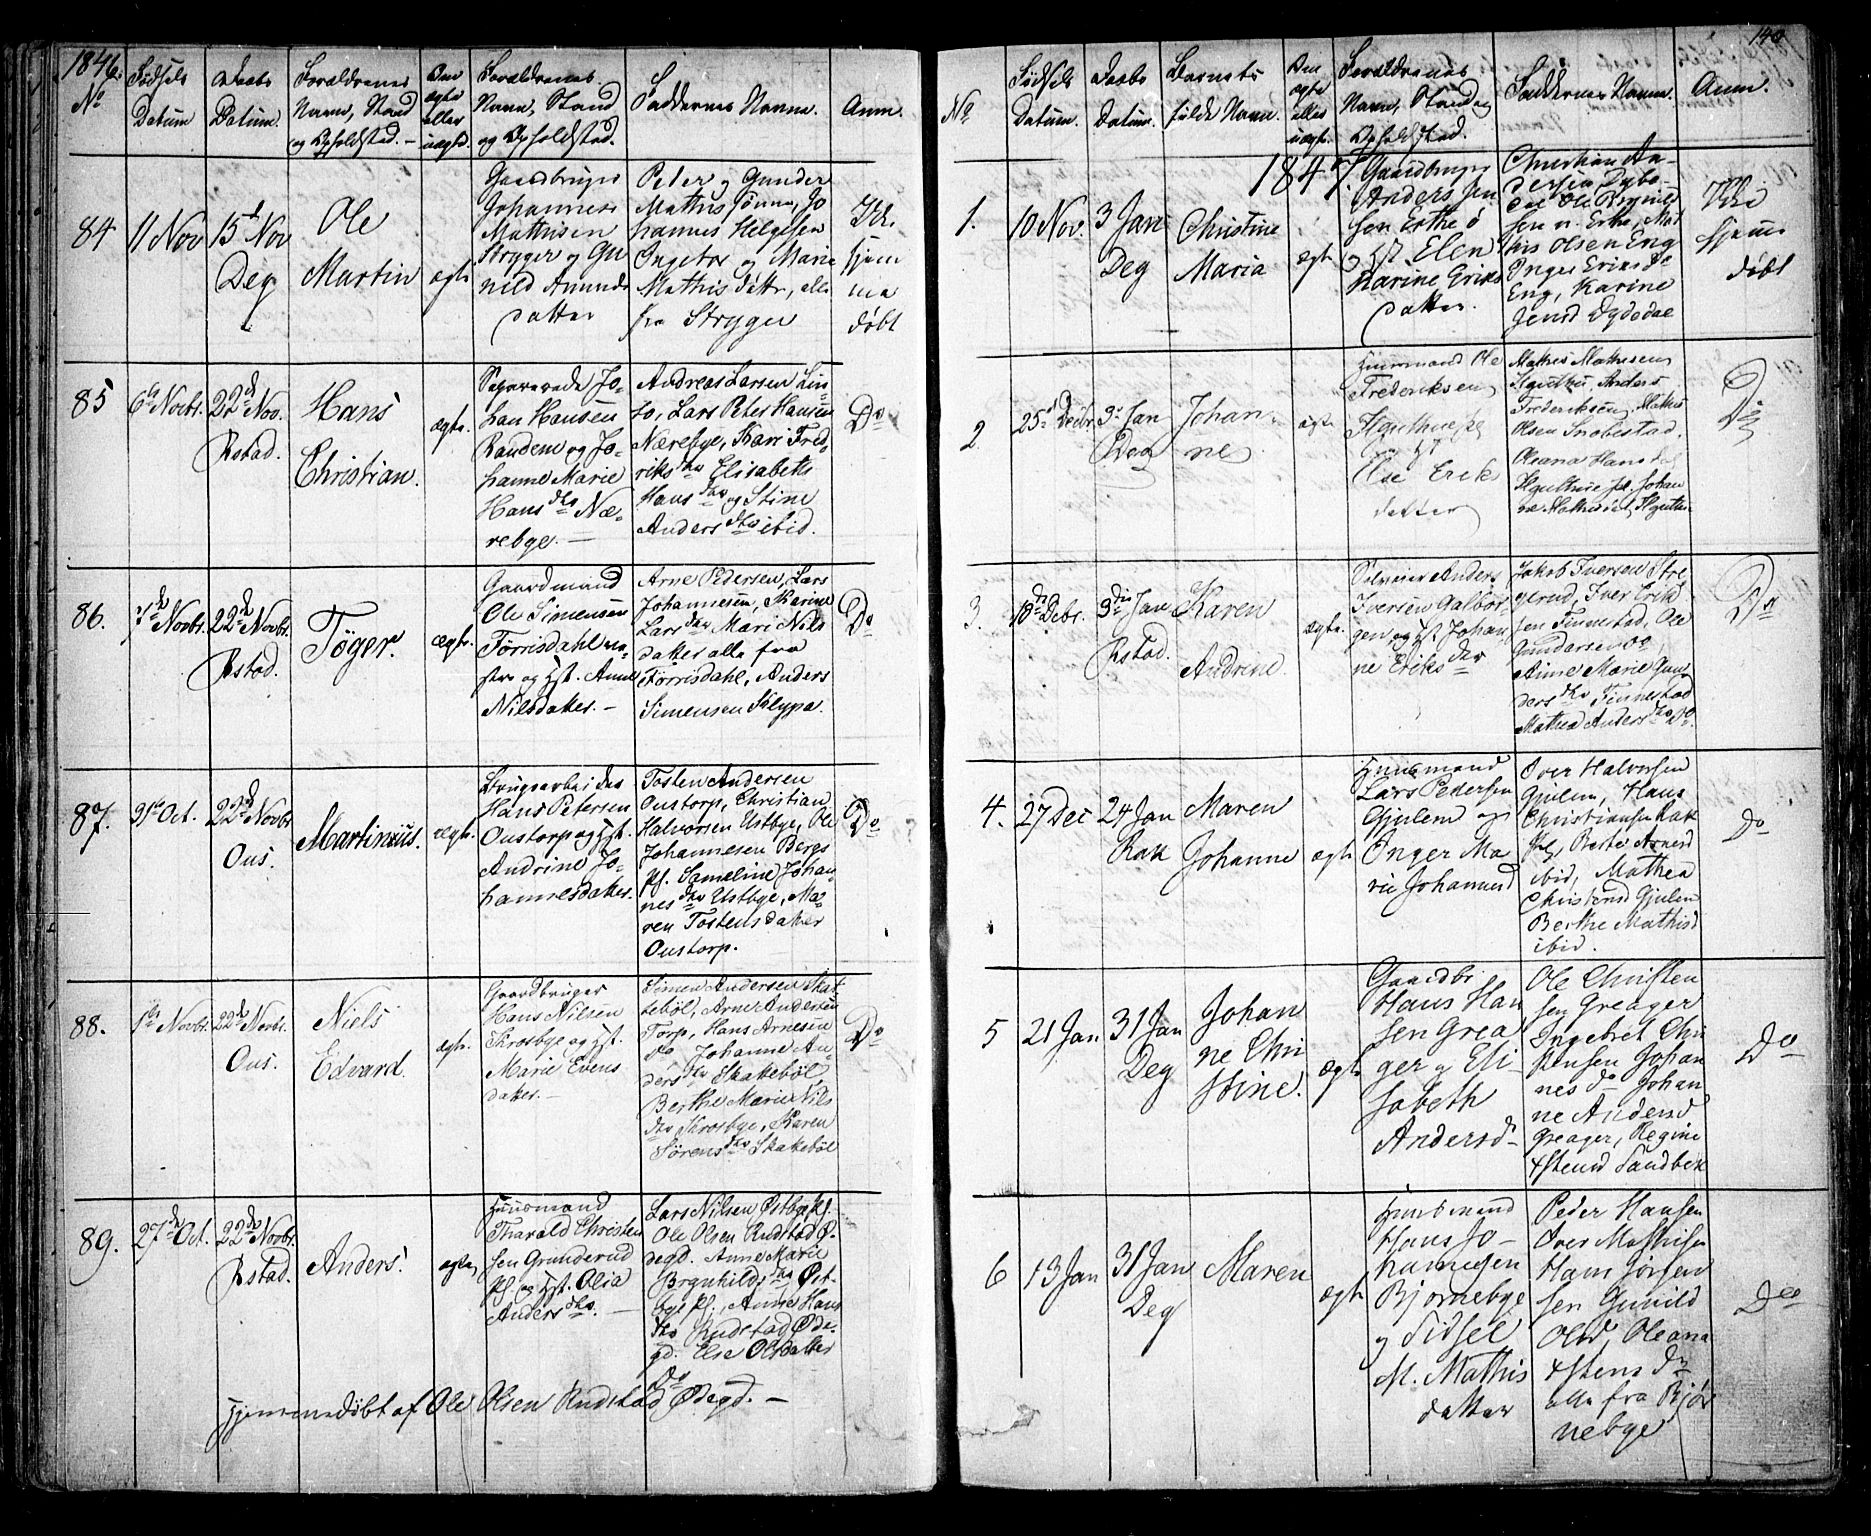 1846.
No
Fødsels
Datum
Daabs
Datum.
Forældrenes
Navn, Stand
og Opholdsted. —
Om
ægte
eller
uægte.
Forældrenes
Navn, Stand
og Opholdsted.
Faddernes Navne.
Anm.
84
11 Nov
15d Nov
Deg
Ole
Martin
ægte
Gaardbruger
Johannes
Mathisen
Stryger og Gu
nild Amunds
datter
Peter og Gunder
Mathis sønner, Jo
hannes Helgesen
Ingebor og Marie
Mathis døttr, alle
fra Stryger
Ikke
hjem
me
døbt
85
6te Novbr.
22de Nov.
Rstad.
Hans
Christian.
ægte.
Jo-
han Hansen
Randem og Jo-
hanne Marie
Hans dtr Næ-
rebye. —
Andreas Larsen Lin-
to, Lars Peter Hansen
Nærebye, Kari Fred-
riks dtr Elisabeth
Hans dtr og Stine
Anders dtr ibid.
Do
86.
7de Novbr.
22de Novbr.
Rstad.
Tøger.
ægte.
Gaardmand
Ole Simensen
Tørrisdahl ve-
stre og Hst. Anne
Nilsdatter. —
Arne Pedersen, Lars
Johannesen, Karine
Lars dtr Mari Nils
datter alle fra
Tørrisdahl, Anders
Simensen Slypa.
Do
87.
31te Oct.
22de Novbr
Ous.
Martinius.
ægte.
Brugsarbeider
Hans Petersen
Oustorp og Hst.
Andrine Jo-
hannesdatter.
Tosten Andersen
Oustorp, Christian
Halvorsen Ustbye, Ole
Johannesen Bergs
Pl. Sameline Johan-
nes dtr Ustbye, Ma-
ren Tostensdatter
Oustorp.
Do
88.
1te Novbr.
22de Novbr.
Ous.
Niels
Edvard.
ægte.
Gaardbruger
Hans Nilsen
Skrosbye og Hst.
Marie Evens
datter. —
Simen Andersen Skat
tebøl, Arne Andersen
Torp, Hans Arnesen
do Johanne An-
ders dtr Skakebøl
Berthe Marie Nils
dtr Skrosbye, Karen
Sørens dtr Skakebøl
Do
89.
27de Oct.
22de Novbr.
Rstad.
Anders.
ægte,
Huusmand
Tharald Christen
sen Grunderud
Pl. og Hst. Olia
Anders dtr. —
Lars Nilsen Østbye Pl.
Ole Olsen Rudstad Ø-
degd. Anne Marie
Brynhilds dtr Øst-
bye Pl., Anne Hans
dtr Rudstad Øde-
gd. Else Olsdatter
Do
Hjemmedøbt af Ole Olsen Rudstad Ødegd. —
140
No
Fødsels
Datum.
Daabs
Datum.
Barnets
fulde Navn.
Om
ægte
eller
uægte.
Forældrenes
Navn, Stand og
Opholdsted.
Faddernes Navne.
Anm.
1847.
1.
10 Nov.
3 Jan
Deg
Christine
Maria
ægte
Gaardbruger
Anders Jen
sen Erthe ø
og Hst Elen
Karine Eriks
datter.
Christian An-
dersen Dybe-
dal
sen n. Erthe, Mat
his Olsen Eng
Inger Eriksd
Eng, Karine
Jensd Dybdae
Ikke
hjemme
døbt
2
25de Decbr.
3die Jan
Deg
Johan-
ne
ægte
Huusmand Ole
Frederiksen
Hauthuepl
Hst
Else Eriks
datter
Mathis Mathisen
Hauthu, Anders
Frederiksen, Mathis
Olsen Snobestad.
Oleana Hansd
Hauthue Pl, Johan
ne Mathisd, Hauthu
Do
3.
18de Debr.
3die Jan
Rstad.
Karen
Andrine.
ægte.
Anders
Iversen Galbor
gen og Hst Johan
ne Eriks dtr
Jakob Iversen Stre
gerud, Iver Erik
sen Finnestad, Ole
Gundersen do
Anne Marie Gun
ders dtr Finnestad
Mathea Anders dtr Do.
Do
4.
27 Dec
24 Jan
Rak
Maren
Johanne
ægte
Huusmand
Lars Pedersen
Gjulem og
Inger Ma
rie Johannesd
Iver Halvorsen
Gjulem, Hans
Christiansen Rak
Pl, Berte Arnesd
ibid, Mathea
Christensd Gjulem
Berthe Mathisd
ibid.
do
5
21 Jan
31 Jan
Deg
Johan
ne Chri
stine.
ægte
Gaardbr
Hans Han
sen Grea
ger og Eli-
sabeth
Andersd-
Ole Christen
sen Greager
Ingebret Chri
stensen Johan
nes do Johan
ne Andersd
Greager, Regine
Estensd Sandbek
Do
6
13 Jan
31 Jan
Deg
Maren
ægte
Huusmand
Hans Jo-
hannesen
Bjørnebye
og Sidsel
M. Mathis
datter
Peder Hansen
Iver Mathisen
Hans Jørgen
sen Gunild
Olsd, Oleana
Estens dr
alle fra Bjør
nebye
Do